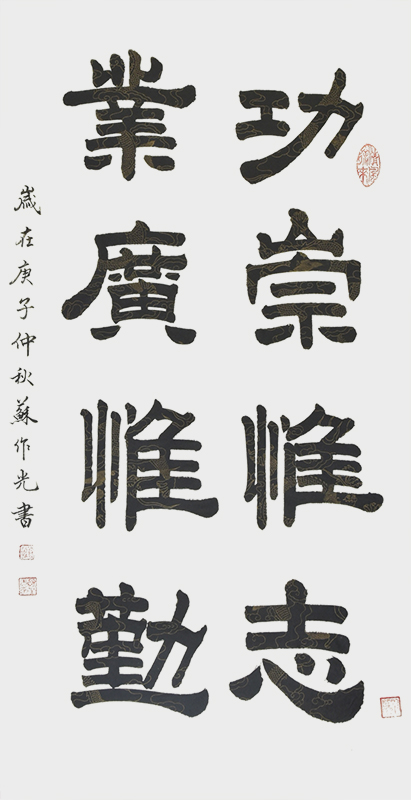 功崇惟志
業廣惟勤
歲在庚子仲秋蘇作光書